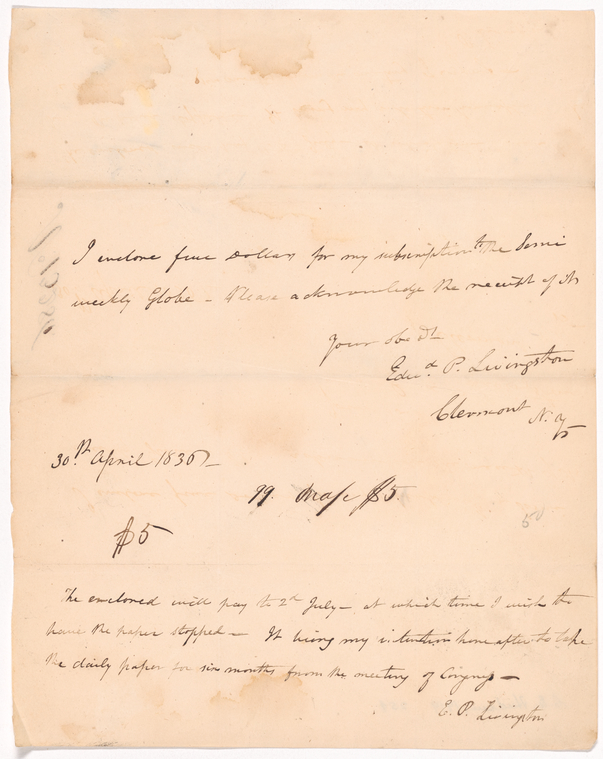 I enclose five Dollars for my subscription to the Semi
weekly Globe - Please acknowledge the receipt of it
Your obe St
Edwd. P. Livingston
Clermont N. Y
30th April 1836
99. $5
$5
50
The enclosed will pay to 2d July - at which time I wish to
have the paper stopped - It being my intention hereafter to take
the daily paper for six months from the meeting of Congress -
E. P. Livingston